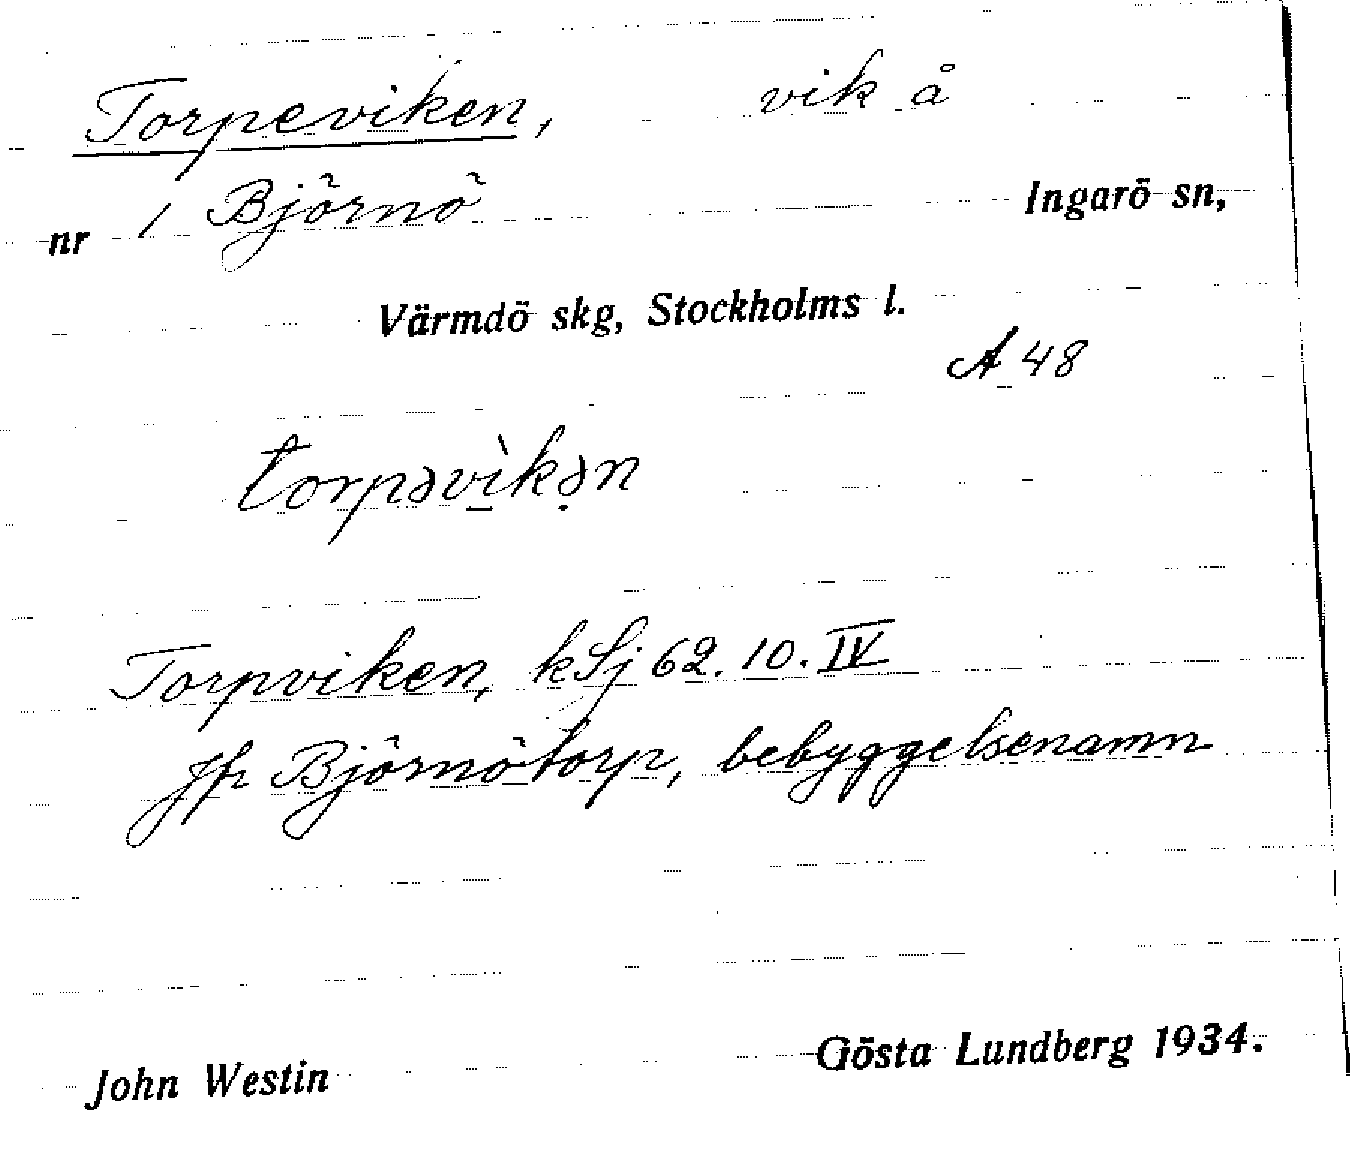 Torpeviken, vik å
nr 1 Björnö Ingarö sn,
Värmdö skg, Stockholms l.
A 48
torpəvìkən
Torpviken, kSj 62. 10. IV
Jfr Björnötorp, bebyggelsenamn
John Westin Gösta Lundberg 1934.